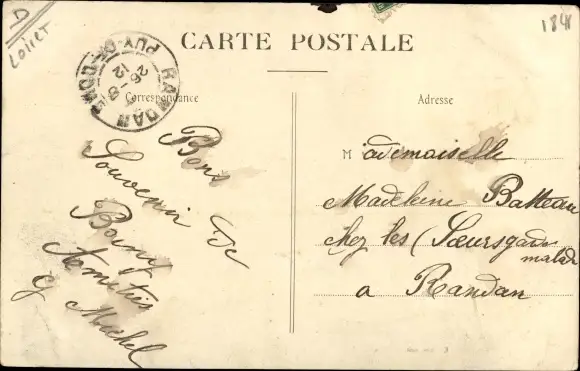 Loiret
1841
CARTE POSTALE
RANDAN
PUY-DE-DOME
12
26 - 8
Correspondance
Adresse
Bons
Souvenir de
Amitiés
Michel
Mademoiselle
Madeleine Batteau
chez les Sœurs garde
malade
a Randan